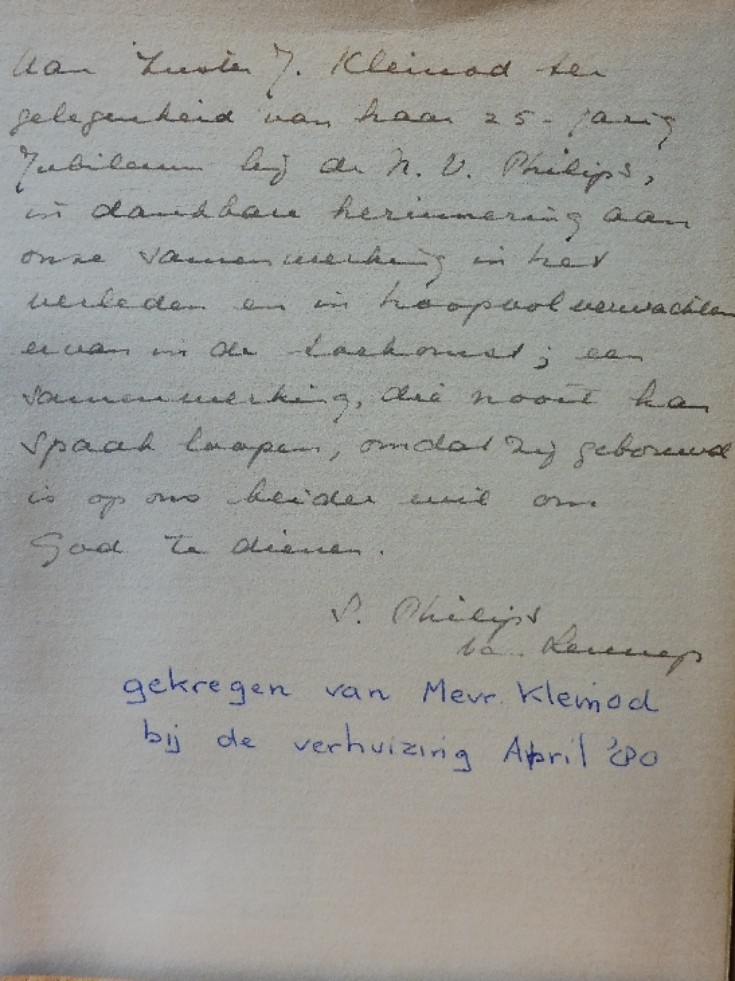 Aan Zuster J. Kleinod ter
gelegenheid van haar 25-jarig
Jubileum bij de N.V. Philips,
in dankbare herinnering aan
onze samenwerking in het
verleden en in hoopvol verwachten
ervan in de toekomst; een
samenwerking, die nooit kan
spaak loopen, omdat zij gebouwd
is op ons beider wil om
God te dienen.
S. Philips
v. Lennep
gekregen van Mevr. Kleinod
bij de verhuizing April '80